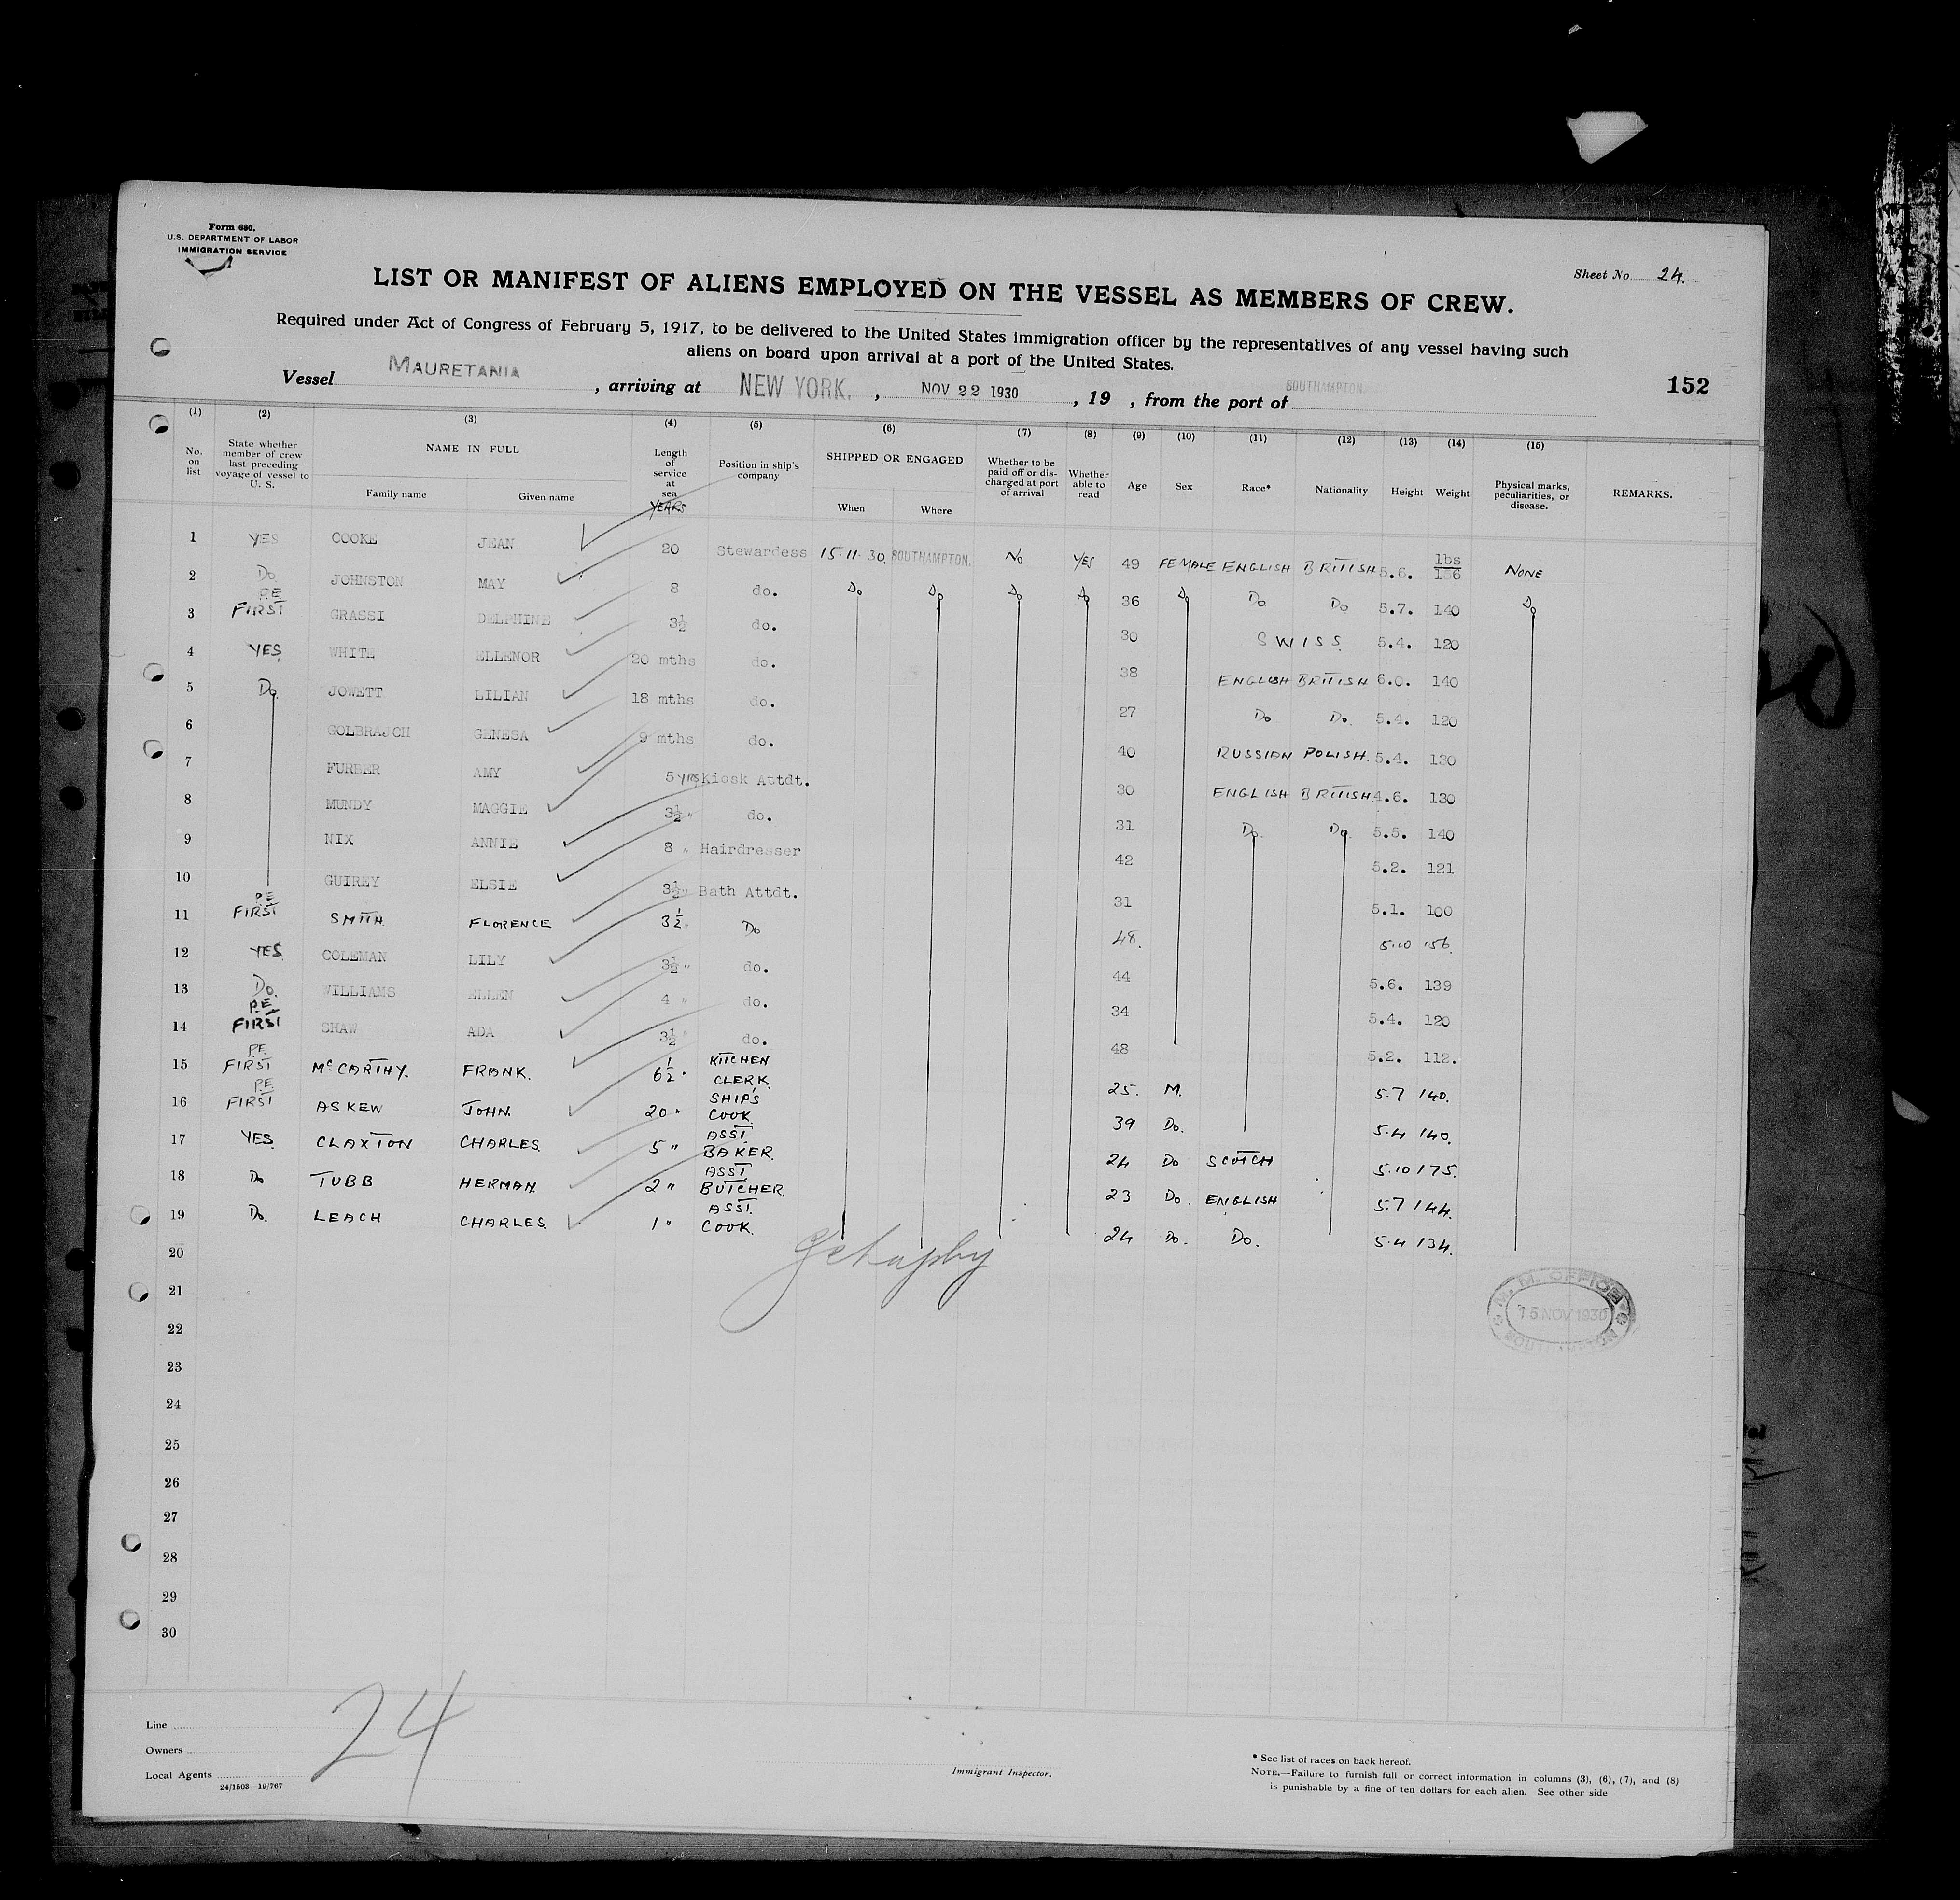 Form 680.
U.S. DEPARTMENT OF LABOR
IMMIGRATION SERVICE
Sheet No. 24.
LIST OR MANIFEST OF ALIENS EMPLOYED ON THE VESSEL AS MEMBERS OF CREW.
Required under Act of Congress of February 5, 1917, to be delivered to the United States immigration officer by the representatives of any vessel having such
aliens on board upon arrival at a port of the United States.
Vessel MAURETANIA, arriving at NEW YORK., NOV 22 1930, 19 , from the port of SOUTHAMPTON.
152
(1) (2) (3) (4) (5) (6) (7) (8) (9) (10) (11) (12) (13) (14) (15)
No. on list | State whether member of crew last preceding voyage of vessel to U. S. | NAME IN FULL Family name Given name | Length of service at sea YEARS | Position in ship's company | SHIPPED OR ENGAGED When Where | Whether to be paid off or discharged at port of arrival | Whether able to read | Age | Sex | Race* | Nationality | Height | Weight | Physical marks, peculiarities, or disease. | REMARKS.
1 YES COOKE JEAN 20 Stewardess 15.11.30. SOUTHAMPTON. No YES 49 FEMALE ENGLISH BRITISH 5.6. lbs 136 NONE
2 Do JOHNSTON MAY 8 do. Do Do Do Do 36 Do Do Do 5.7. 140 Do
3 P.E. FIRST GRASSI DELPHINE 3½ do. 30 SWISS. 5.4. 120
4 YES WHITE ELLENOR 20 mths do. 38 ENGLISH BRITISH 6.0. 140
5 Do. JOWETT LILIAN 18 mths do. 27 Do Do. 5.4. 120
6 GOLBRAJCH GENESA 9 mths do. 40 RUSSIAN POLISH. 5.4. 130
7 FURBER AMY 5 YRS Kiosk Attdt. 30 ENGLISH BRITISH 4.6. 130
8 MUNDY MAGGIE 3½ " do. 31 Do. Do. 5.5. 140
9 NIX ANNIE 8 " Hairdresser 42 5.2. 121
10 GUIREY ELSIE 3½ " Bath Attdt. 31 5.1. 100
11 P.E. FIRST SMITH. FLORENCE 3½ " Do 48. 5.10 156.
12 YES. COLEMAN LILY 3½ " do. 44 5.6. 139
13 Do. WILLIAMS ELLEN 4 " do. 34 5.4. 120
14 P.E. FIRST SHAW ADA 3½ " do. 48 5.2. 112.
15 P.E. FIRST McCARTHY. FRANK. 6½ " KITCHEN CLERK. 25. M. 5.7 140.
16 P.E. FIRST ASKEW JOHN. 20 " SHIP'S COOK 39 Do. 5.4 140.
17 YES. CLAXTON CHARLES. 5 " ASST. BAKER. 24 Do SCOTCH 5.10 175.
18 Do TUBB HERMAN. 2 " ASST BUTCHER. 23 Do. ENGLISH 5.7 144.
19 Do. LEACH CHARLES. 1 " ASST. COOK. 24 Do. Do. 5.4 134.
20
21
22
23
24
25
26
27
28
29
30
M. M. OFFICE
15 NOV 1930
SOUTHAMPTON
24
Line
Owners
Local Agents
24/1503—19/767
Immigrant Inspector.
* See list of races on back hereof.
NOTE.—Failure to furnish full or correct information in columns (3), (6), (7), and (8)
is punishable by a fine of ten dollars for each alien. See other side